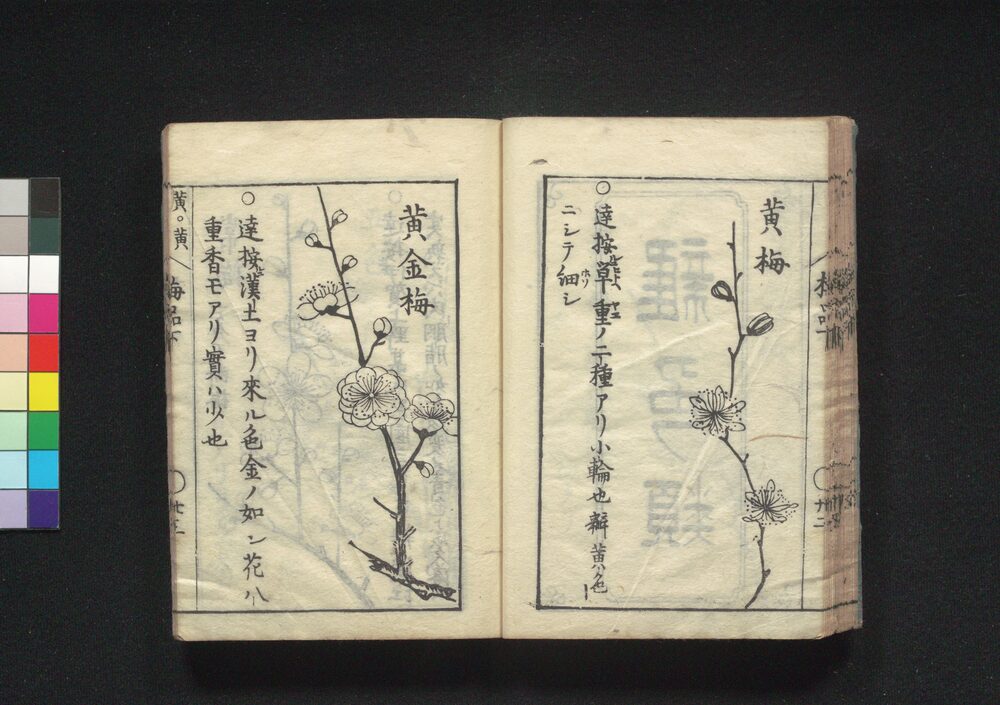 黄梅
○達按單重ノ二種アリ小輪也瓣黄色
ニシテ細シ
黄金梅
○達按漢土ヨリ來ル色金ノ如シ花八
重香モアリ實ハ少也
黄。黄
梅品下